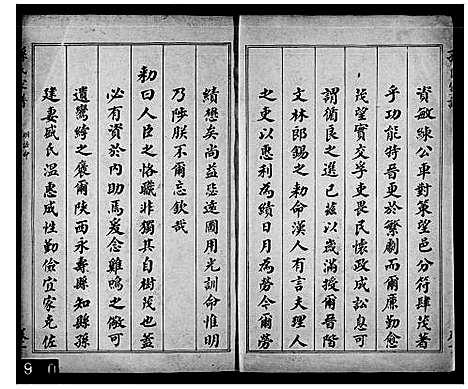 資敏練公車對策望邑分符肆茂著
乎功能特晉吏於繁劇而爾廉勤愈
茂望實交孚吏畏民懷政成訟息可
謂循良之選已茲以歲滿授爾晉階
文林郎錫之勅命漢人有言夫理人
之吏以惠利為績日月為勞今爾勞
績懋矣尚益恢遠圖用光訓命惟明
乃陟朕不爾忘欽哉
勅曰人臣之恪職非獨其自樹茂也蓋
必有資於內助焉爰念雞鳴之儆可
遺鸞綍之褒爾陝西永壽縣知縣孫
建妻戚氏溫惠成性勤儉宜家克佐
90